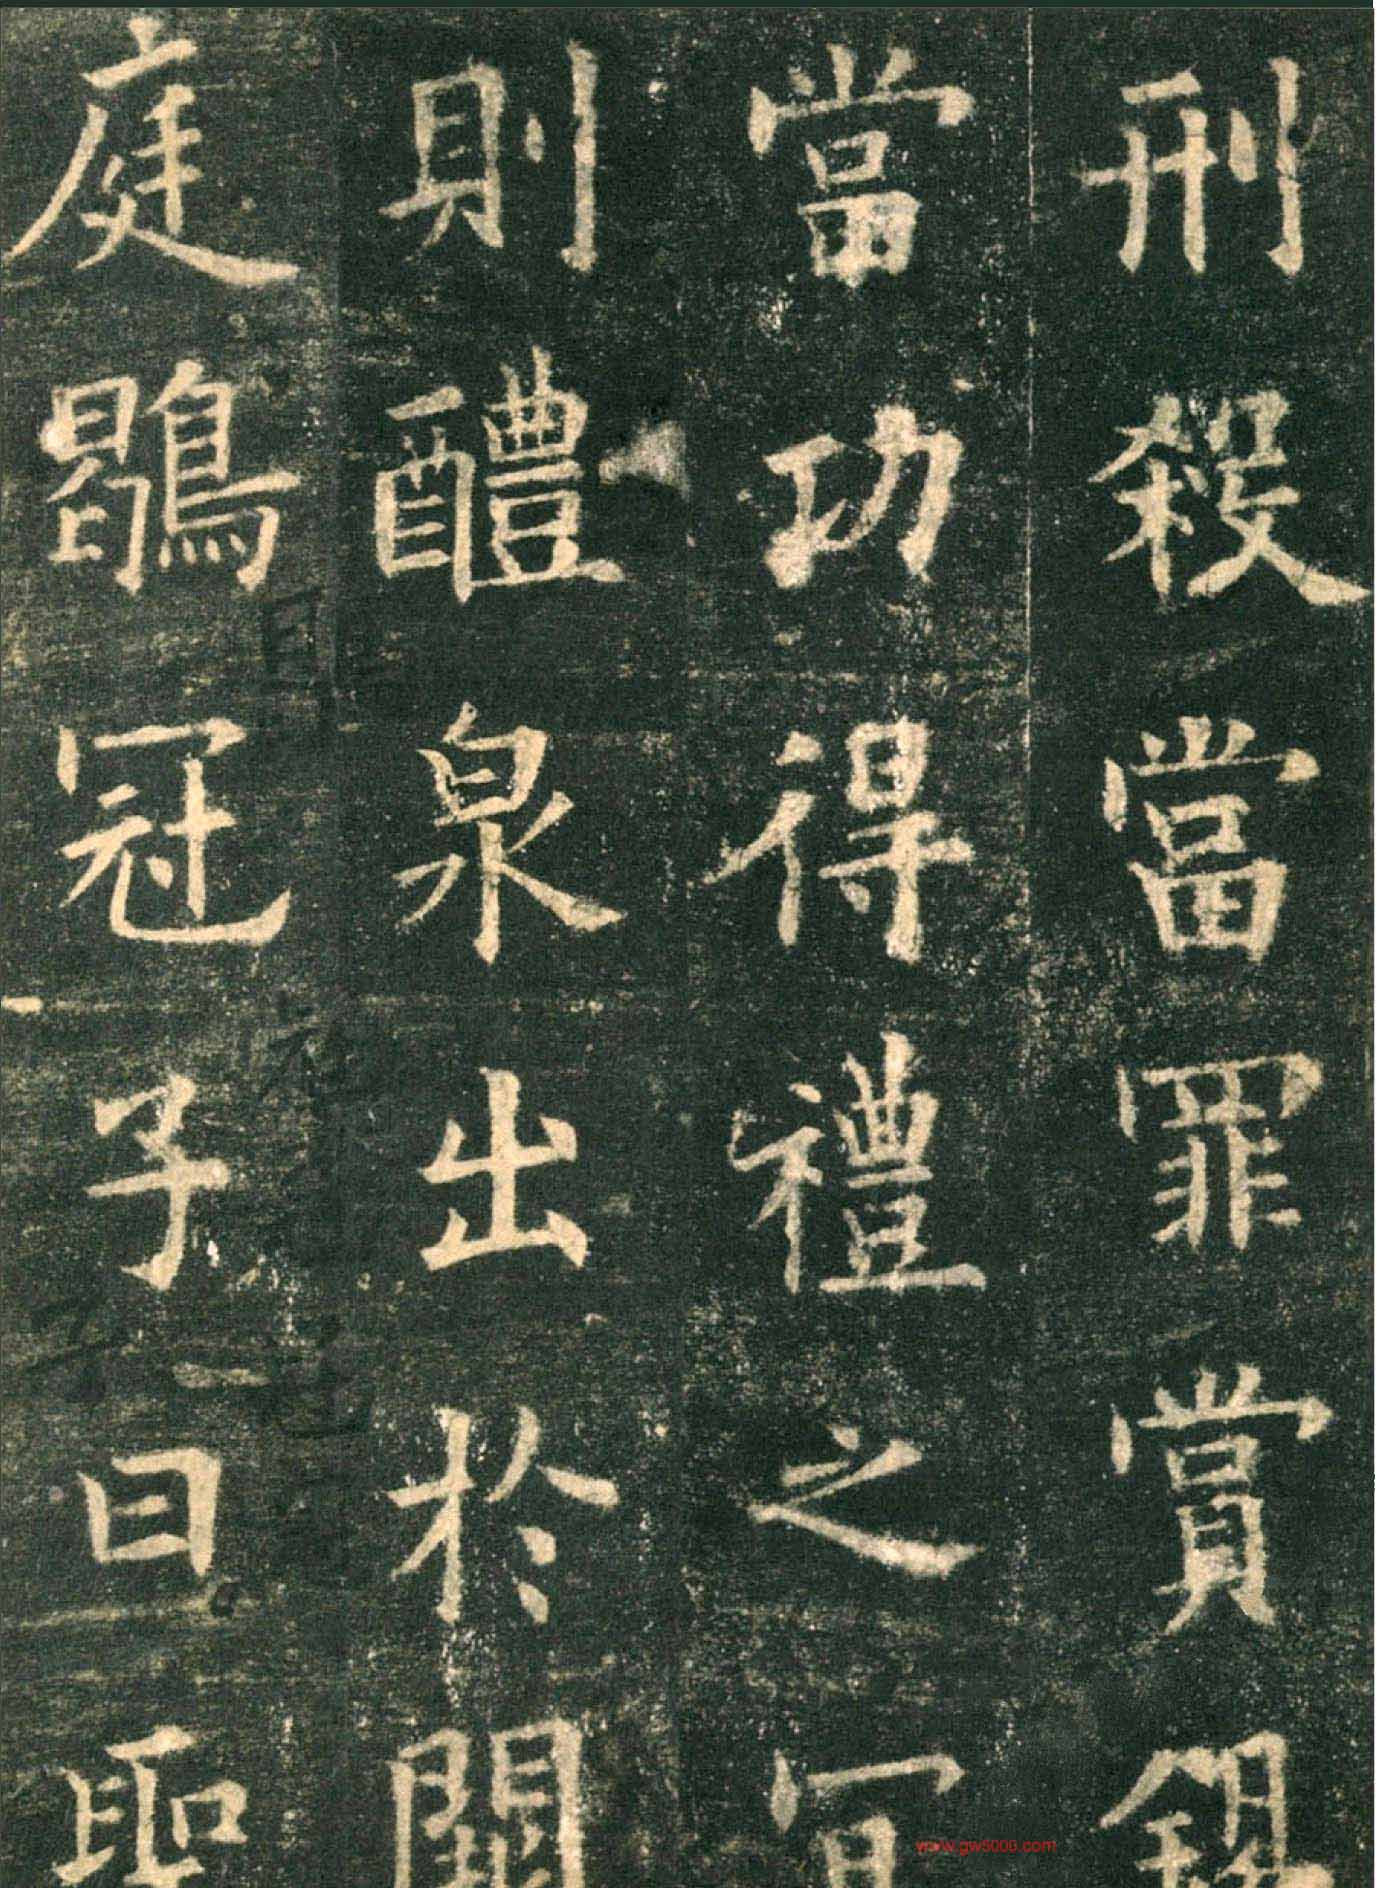 刑殺當罪賞錫
當功得禮之宜
則醴泉出於闕
庭鶡冠子曰聖
www.gw5000.com